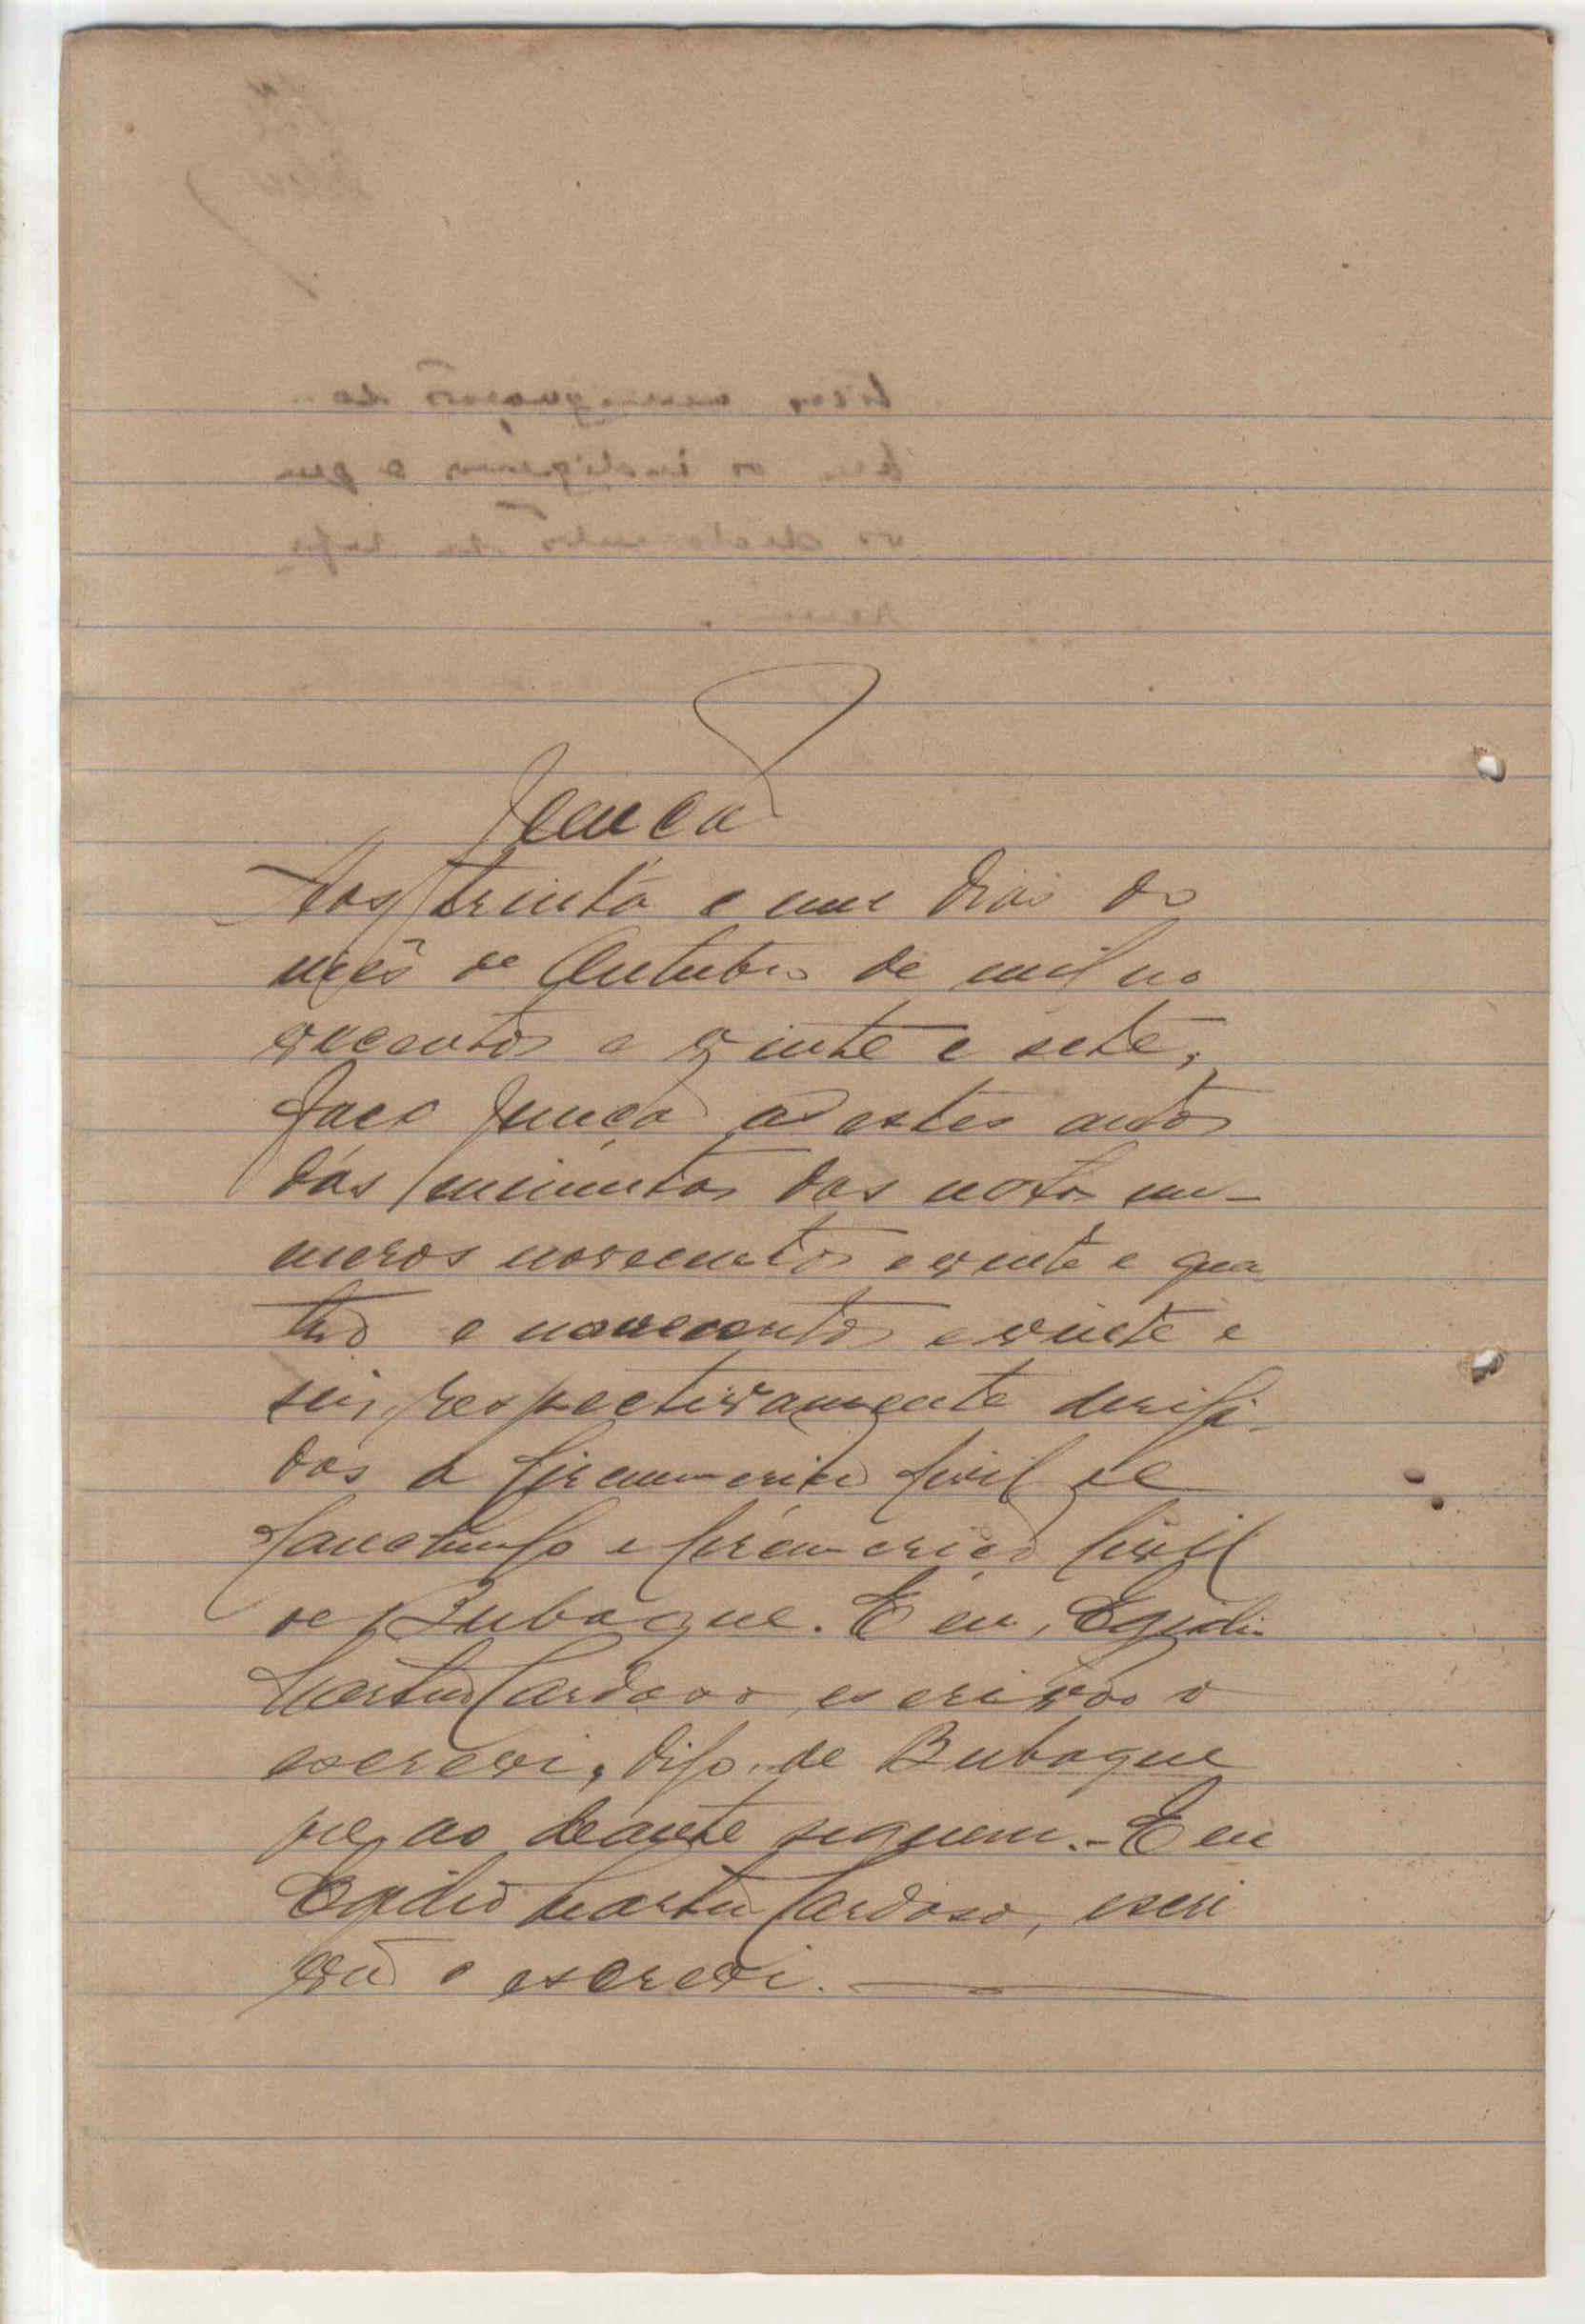 Junção
Aos trinta e um dias do
mês de Outubro de mil no
vecentos e vinte e sete,
faço junção a estes autos
das minutas das notas nu-
meros novecentos e vinte e qua
tro e novecentos e vinte e
seis, respectivamente derigi-
das a Circunscrição Civil de
e Circunscrição Civil
de Bubaque. E eu, Egidio
Martins Cardoso, escrivão o
escrevi, digo, de Bubaque
que ao deante seguem. - E eu
Egidio Martins Cardoso, escri
vão o escrevi.